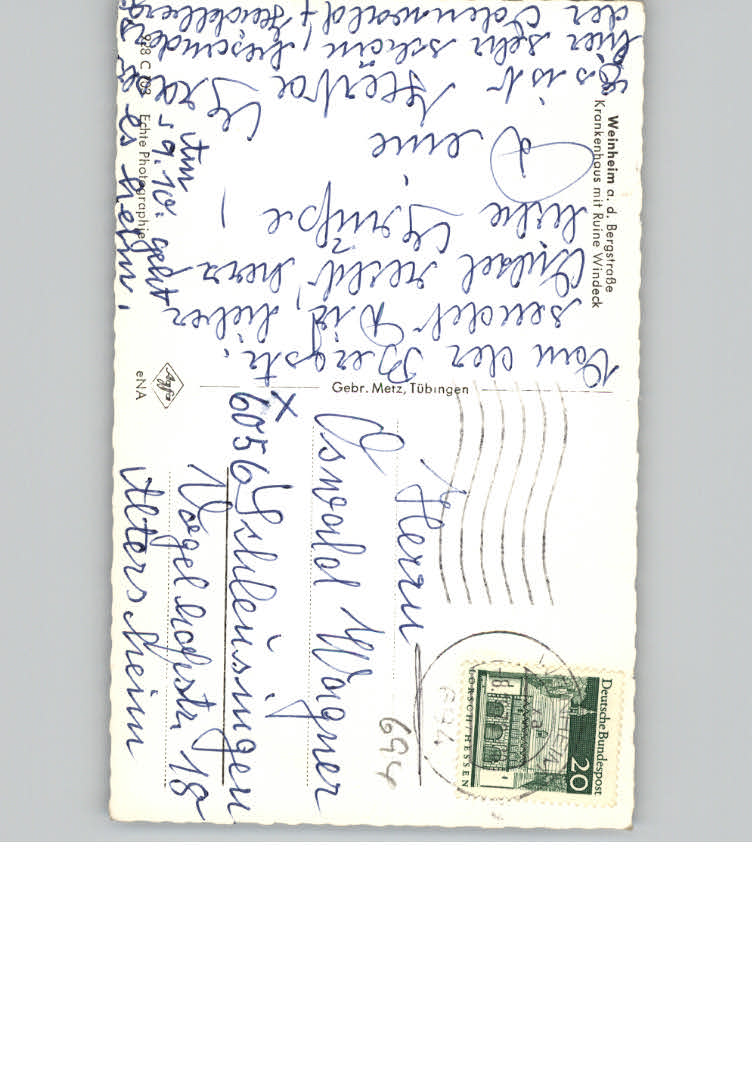 Weinheim a. d. Bergstraße
Krankenhaus mit Ruine Windeck
Von der Bergstr.
sendet Dir, lieber
Onkel recht herz
liche Grüße –
Deine
Herta
Es ist
hier sehr schön, besonders
der Odenwald + Heidelberg
Am
9.10. geht
es heim.
928 C 702 Echte Photographie
Agfa
eNA
Gebr. Metz, Tübingen
Herrn
Oswald Wagner
6056 Schleusingen
Vogelhofstr. 18
Altersheim
694
Deutsche Bundespost
20
LORSCH/HESSEN